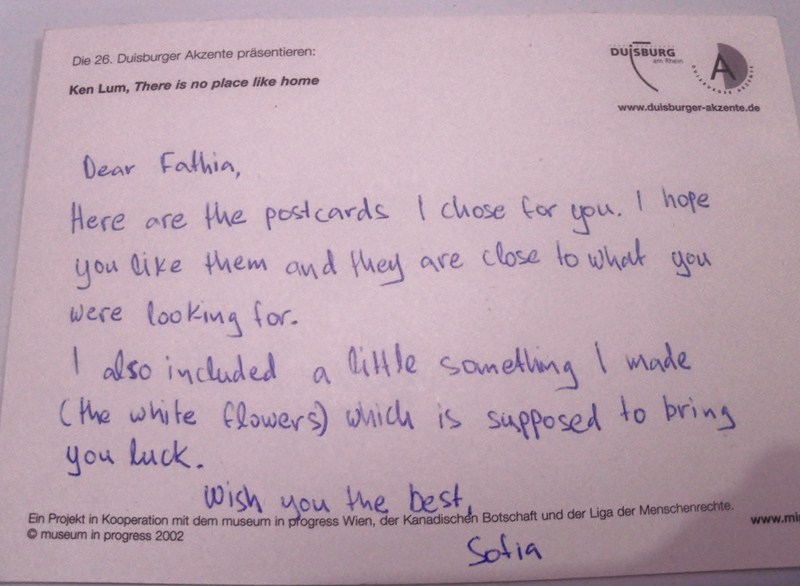 Die 26. Duisburger Akzente präsentieren:
Ken Lum, There is no place like home
DUISBURG
am Rhein
A
www.duisburger-akzente.de
Dear Fathia,
Here are the postcards I chose for you. I hope
you like them and they are close to what you
were looking for.
I also included a little something I made
(the white flowers) which is supposed to bring
you luck.
Wish you the best,
Ein Projekt in Kooperation mit dem museum in progress Wien, der Kanadischen Botschaft und der Liga der Menschenrechte.
© museum in progress 2002
www.mi
Sofia